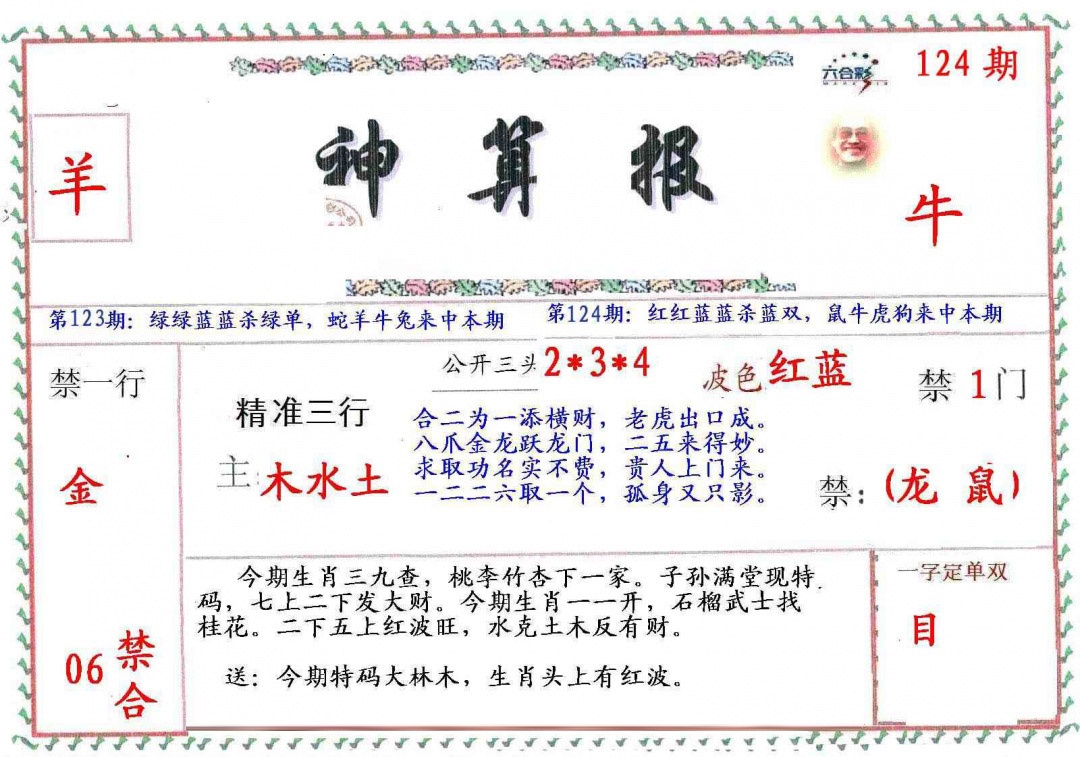 六合彩
124 期
羊
神算报
牛
第123期：绿绿蓝蓝杀绿单，蛇羊牛兔来中本期
第124期：红红蓝蓝杀蓝双，鼠牛虎狗来中本期
禁一行
金
06
禁合
公开三头2*3*4
波色红蓝
禁1门
精准三行
主:木水土
合二为一添横财，老虎出口成。
八爪金龙跃龙门，二五来得妙。
求取功名实不费，贵人上门来。
一二二六取一个，孤身又只影。
禁：(龙 鼠)
今期生肖三九查，桃李竹杏下一家。子孙满堂现特
码，七上二下发大财。今期生肖一一开，石榴武士找
桂花。二下五上红波旺，水克土木反有财。
送：今期特码大林木，生肖头上有红波。
一字定单双
目